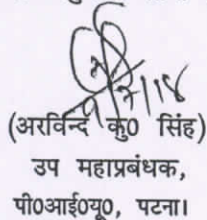 (अरविन्द कु0 सिंह)
उप महाप्रबंधक,
पी0आई0यू0, पटना।